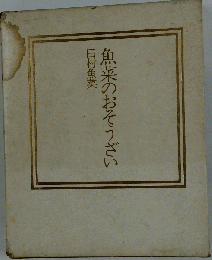 魚菜のおそうざい
田村魚菜